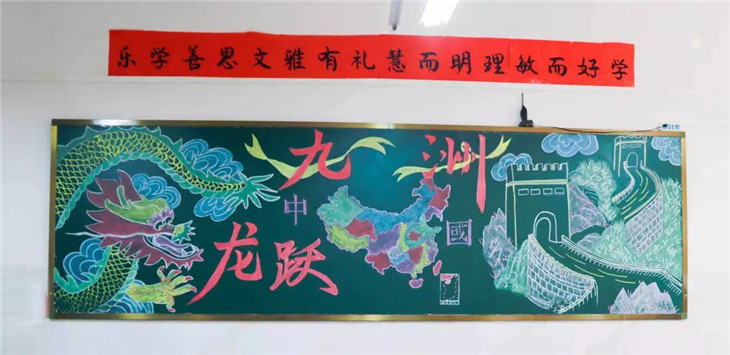 乐学善思文雅有礼慧而明理敏而好学
九洲
中國
龙跃